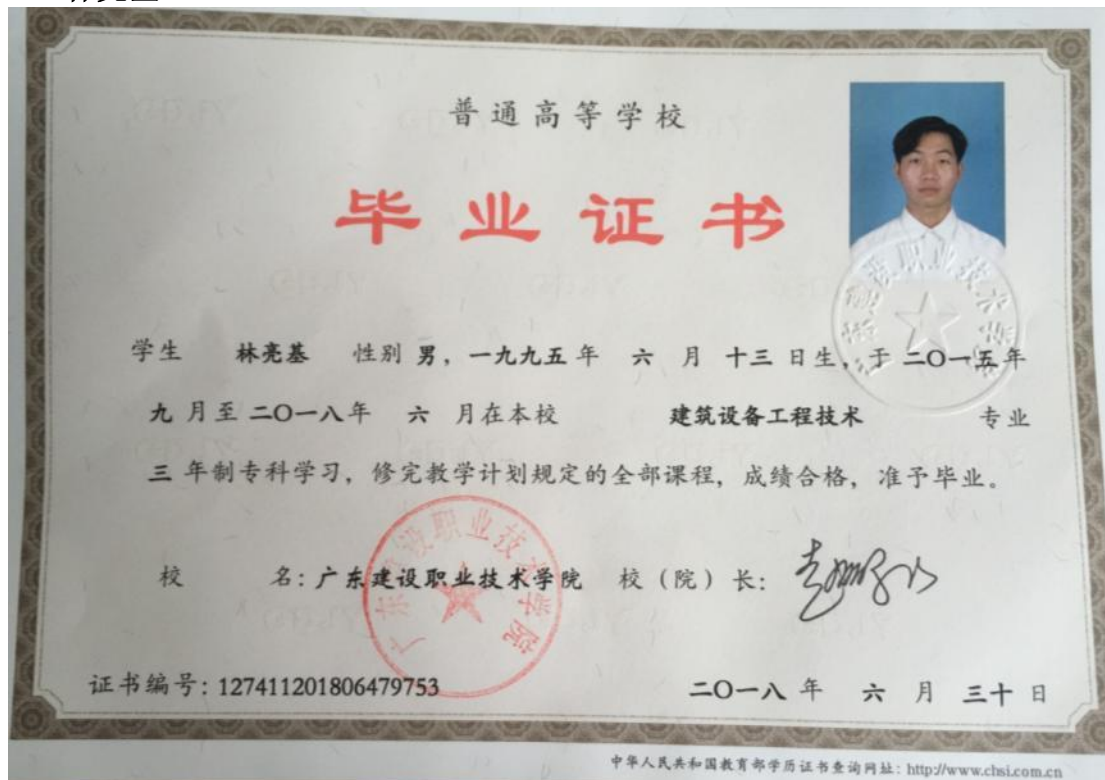 普通高等学校
毕业证书
学生 林亮基 性别 男，一九九五年 六 月 十三 日生，于 二〇一五年
九 月至 二〇一八年 六 月在本校 建筑设备工程技术 专业
三 年制专科学习，修完教学计划规定的全部课程，成绩合格，准予毕业。
广东建设职业技术学院
校 名：广东建设职业技术学院 校（院）长：
证书编号：127411201806479753
二〇一八 年 六 月 三十 日
中华人民共和国教育部学历证书查询网址：http://www.chsi.com.cn